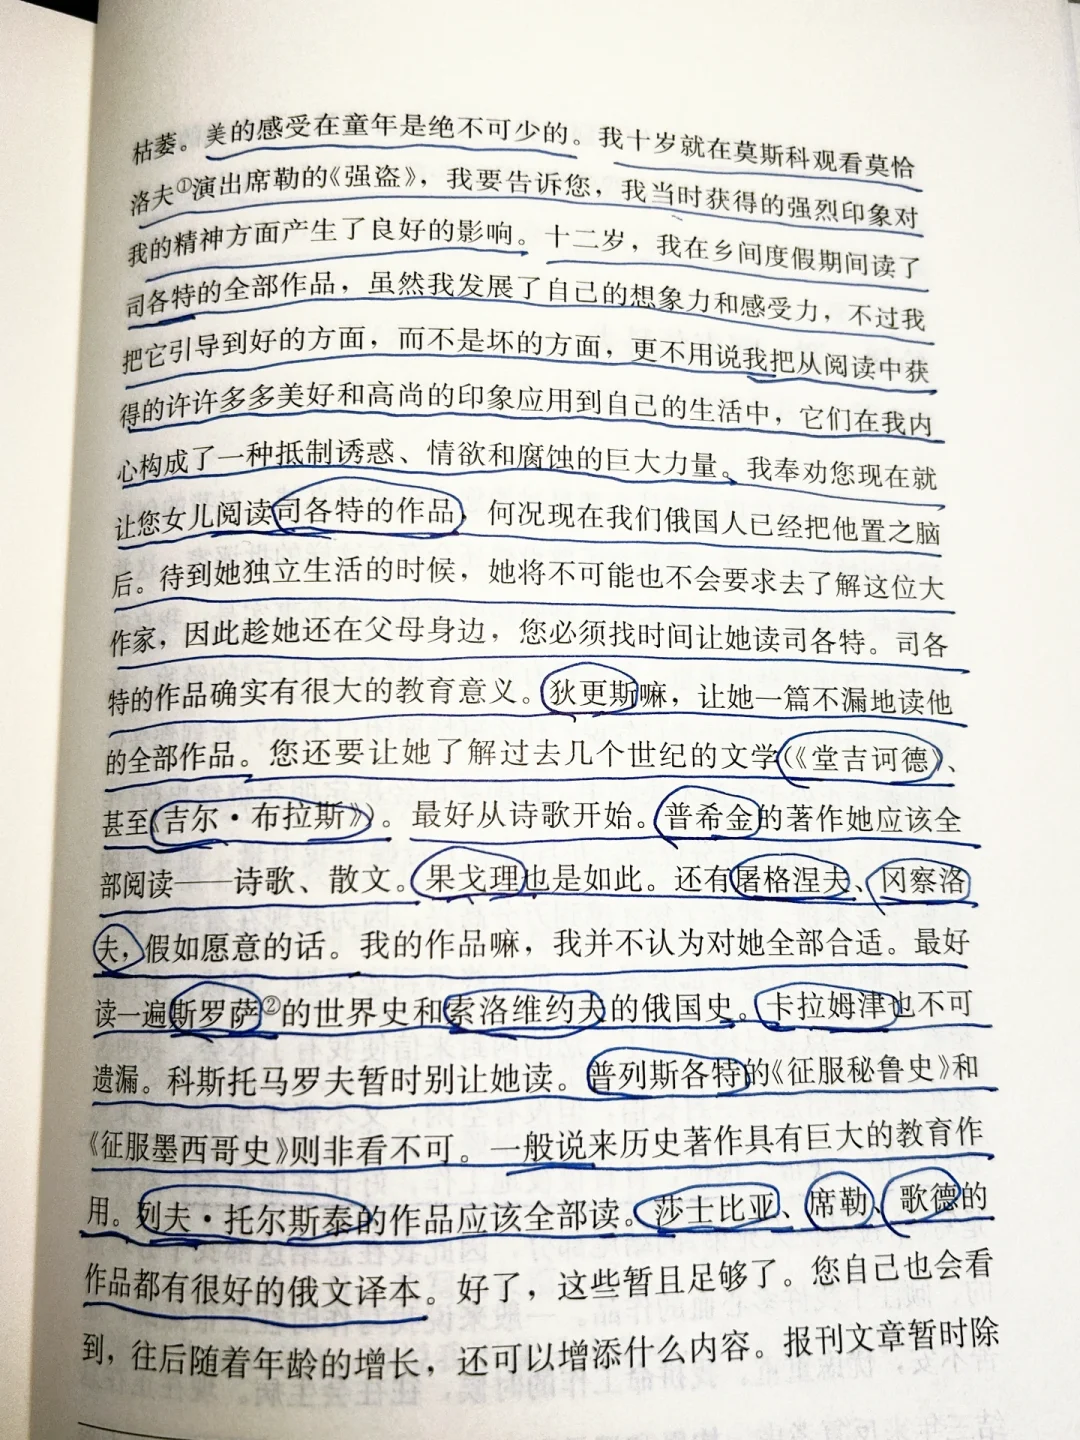 枯萎。美的感受在童年是绝不可少的。我十岁就在莫斯科观看莫恰
洛夫①演出席勒的《强盗》，我要告诉您，我当时获得的强烈印象对
我的精神方面产生了良好的影响。十二岁，我在乡间度假期间读了
司各特的全部作品，虽然我发展了自己的想象力和感受力，不过我
把它引导到好的方面，而不是坏的方面，更不用说我把从阅读中获
得的许许多多美好和高尚的印象应用到自己的生活中，它们在我内
心构成了一种抵制诱惑、情欲和腐蚀的巨大力量。我奉劝您现在就
让您女儿阅读司各特的作品，何况现在我们俄国人已经把他置之脑
后。待到她独立生活的时候，她将不可能也不会要求去了解这位大
作家，因此趁她还在父母身边，您必须找时间让她读司各特。司各
特的作品确实有很大的教育意义。狄更斯嘛，让她一篇不漏地读他
的全部作品。您还要让她了解过去几个世纪的文学（《堂吉诃德》、
甚至《吉尔·布拉斯》）。最好从诗歌开始。普希金的著作她应该全
部阅读——诗歌、散文。果戈理也是如此。还有屠格涅夫、冈察洛
夫，假如愿意的话。我的作品嘛，我并不认为对她全部合适。最好
读一遍斯罗萨②的世界史和索洛维约夫的俄国史。卡拉姆津也不可
遗漏。科斯托马罗夫暂时别让她读。普列斯各特的《征服秘鲁史》和
《征服墨西哥史》则非看不可。一般说来历史著作具有巨大的教育作
用。列夫·托尔斯泰的作品应该全部读。莎士比亚、席勒、歌德的
作品都有很好的俄文译本。好了，这些暂且足够了。您自己也会看
到，往后随着年龄的增长，还可以增添什么内容。报刊文章暂时除